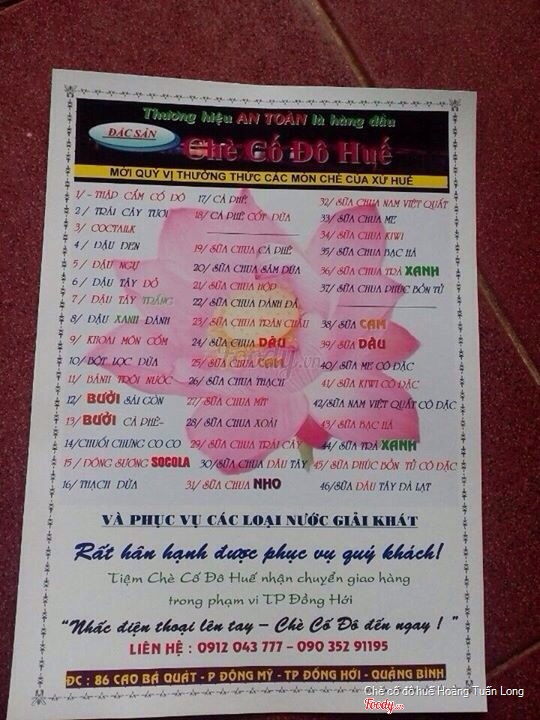 Thương hiệu AN TOÀN là hàng đầu
ĐẶC SẢN
Chè Cố Đô Huế
MỜI QUÝ VỊ THƯỞNG THỨC CÁC MÓN CHÈ CỦA XỨ HUẾ
1/ - THẬP CẨM CỐ ĐÔ
2 / TRÁI CÂY TƯƠI
3/ COCTAILK
4 / ĐẬU ĐEN
5 / ĐẬU NGỰ
6 / ĐẬU TÂY ĐỎ
7 / ĐẬU TÂY TRẮNG
8/ ĐẬU XANH ĐÁNH
9/ KHOAI MÔN CỐM
10/ BỘT LỌC DỪA
11/ BÁNH TRÔI NƯỚC
12/ BƯỞI SÀI GÒN
13/ BƯỞI CÀ PHÊ-
14/CHUỐI CHƯNG CO CO
15 / ĐÔNG SƯƠNG SOCOLA
16/ THẠCH DỪA
17/ CÀ PHÊ
18/ CÀ PHÊ CỐT DỪA
19/ SỮA CHUA CÀ PHÊ
20/ SỮA CHUA SẦM DỨA
21/ SỮA CHUA HỘP
22/ SỮA CHUA ĐÁNH ĐÁ
23/ SỮA CHUA TRÂN CHÂU
24/ SỮA CHUA DÂU
25/ SỮA CHUA CAM
26/ SỮA CHUA THẠCH
27/ SỮA CHUA MÍT
28/ SỮA CHUA XOÀI
29/ SỮA CHUA TRÁI CÂY
30/SỮA CHUA DÂU TÂY
31/ SỮA CHUA NHO
32/ SỮA CHUA NAM VIỆT QUẤT
33/ SỮA CHUA ME
34/ SỮA CHUA KIWI
35/ SỮA CHUA BẠC HÀ
36/ SỮA CHUA TRÀ XANH
37/ SỮA CHUA PHÚC BỒN TỬ
38/ SỮA CAM
39/ SỮA DÂU
40/ SỮA ME CÔ ĐẶC
41/ SỮA KIWI CÔ ĐẶC
42/SỮA NAM VIỆT QUẤT CÔ ĐẶC
43/ SỮA BẠC HÀ
44/ SỮA TRÀ XANH
45/ SỮA PHÚC BỒN TỬ CÔ ĐẶC
46/ SỮA DÂU TÂY ĐÀ LẠT
VÀ PHỤC VỤ CÁC LOẠI NƯỚC GIẢI KHÁT
Rất hân hạnh được phục vụ quý khách!
Tiệm Chè Cố Đô Huế nhận chuyển giao hàng
trong phạm vi TP Đồng Hới
“Nhấc điện thoại lên tay – Chè Cố Đô đến ngay ! ”
LIÊN HỆ : 0912 043 777 - 090 352 91195
ĐC : 86 CAO BÁ QUÁT - P ĐỒNG MỸ - TP ĐỒNG HỚI - QUẢNG BÌNH
Chè cố đô huế Hoàng Tuấn Long
Foody.vn